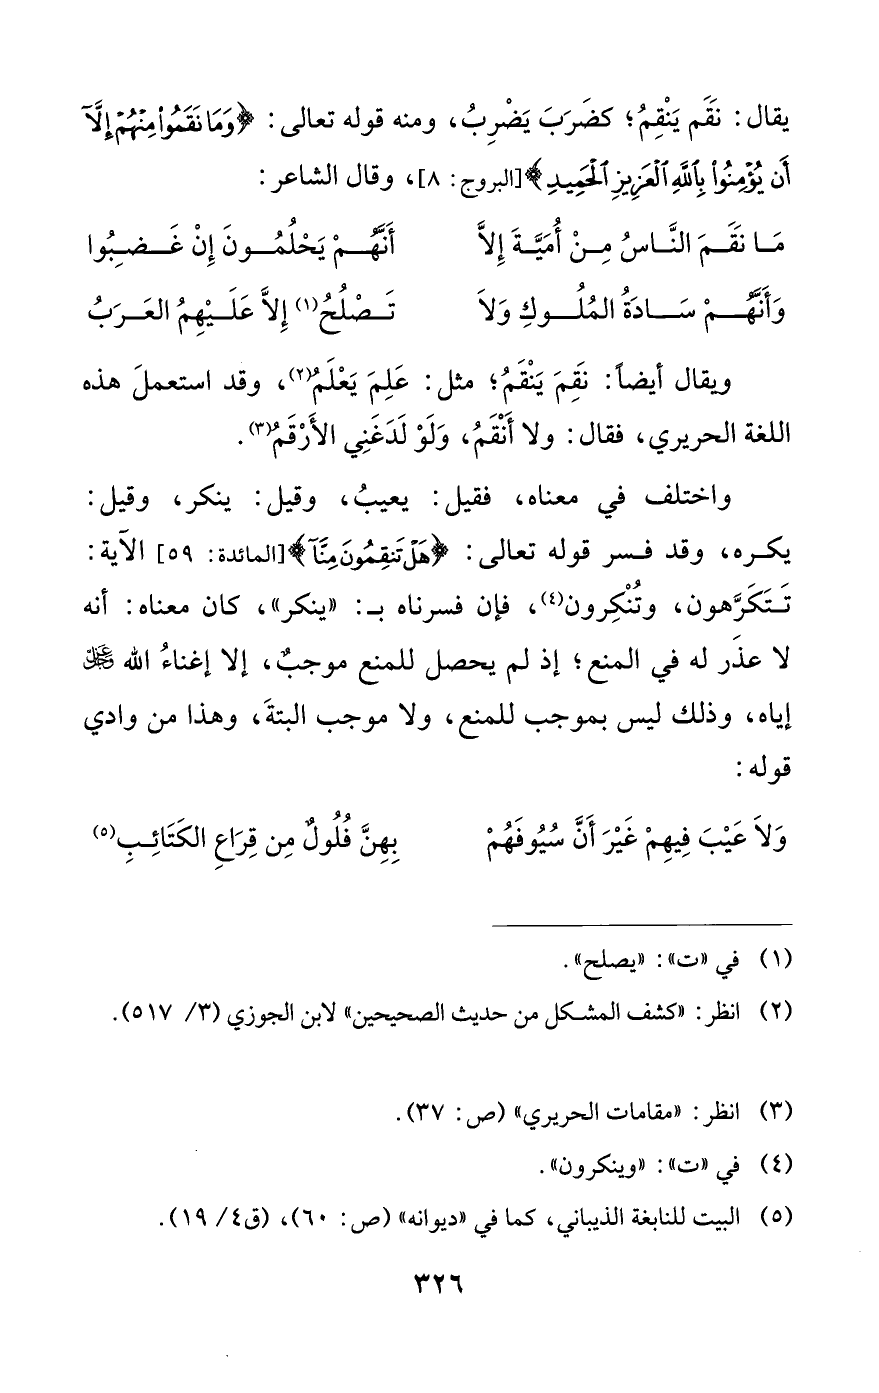 يقال: نَقَم يَنْقِمُ؛ كضَرَبَ يَضْرِبُ، ومنه قوله تعالى: ﴿وَمَا نَقَمُوا۟ مِنْهُمْ إِلَّآ
أَن يُؤْمِنُوا۟ بِٱللَّهِ ٱلْعَزِيزِ ٱلْحَمِيدِ﴾[البروج: ٨]، وقال الشاعر:
مَـا نَقَـمَ النَّـاسُ مِـنْ أُمَيَّـةَ إِلاَّ أَنَّهُـمْ يَحْلُمُـونَ إِنْ غَـضِبُوا
وَأَنَّهُـمْ سَـادَةُ المُلُـوكِ وَلاَ تَـصْلُحُ(١) إِلاَّ عَلَـيْهِمُ العَـرَبُ
ويقال أيضاً: نَقِمَ يَنْقَمُ؛ مثل: عَلِمَ يَعْلَمُ(٢)، وقد استعملَ هذه
اللغة الحريري، فقال: ولا أَنْقَمُ، وَلَوْ لَدَغَنِي الأَرْقَمُ(٣).
واختلف في معناه، فقيل: يعيبُ، وقيل: ينكر، وقيل:
يكـره، وقد فـسر قوله تعالى: ﴿هَلْ تَنقِمُونَ مِنَّآ﴾[المائدة: ٥٩] الآية:
تَـتَكَرَّهون، وتُنْكِرون(٤)، فإن فسرناه بـ: «ينكر»، كان معناه: أنه
لا عذَر له في المنع؛ إذ لم يحصل للمنع موجبٌ، إلا إغناءُ الله ﷻ
إياه، وذلك ليس بموجب للمنع، ولا موجب البتةَ، وهذا من وادي
قوله:
وَلاَ عَيْبَ فِيهِمْ غَيْرَ أَنَّ سُيُوفَهُمْ بِهِنَّ فُلُولٌ مِن قِرَاعِ الكَتَائِـبِ(٥)
(١) في «ت»: «يصلح».
(٢) انظر: «كشف المشكل من حديث الصحيحين» لابن الجوزي (٣/ ٥١٧).
(٣) انظر: «مقامات الحريري» (ص: ٣٧).
(٤) في «ت»: «وينكرون».
(٥) البيت للنابغة الذيباني، كما في «ديوانه» (ص: ٦٠)، (ق٤/ ١٩).
٣٢٦